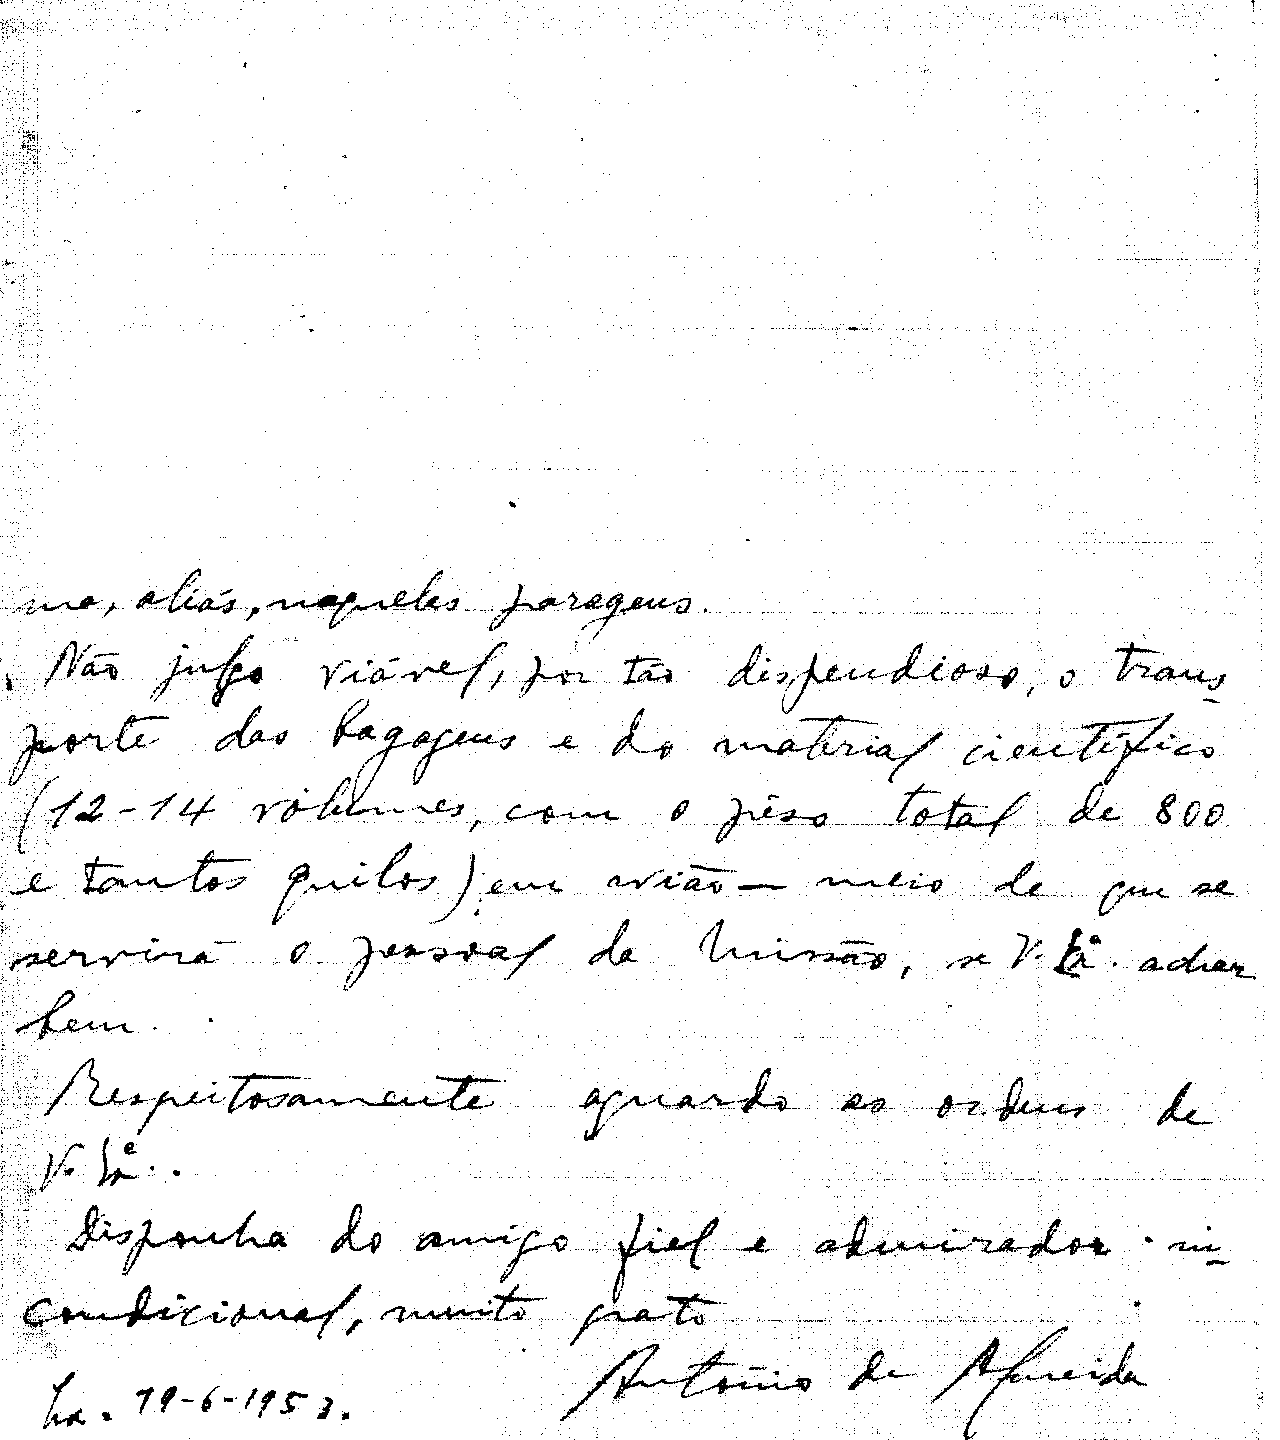 mo, aliás, naqueles paragens.
Não julgo viável, por tão dispendioso, o trans-
porte das bagagens e do material científico
(12-14 volumes, com o pêso total de 800
e tantos quilos) em avião — meio de que se
servirá o pessoal da Missão, se V. Exª. achar
bem.
Respeitosamente aguardo as ordens de
V. Exª..
Disponha do amigo fiel e admirador in-
condicional, muito grato
António de Almeida
Lxa. 19-6-1953.